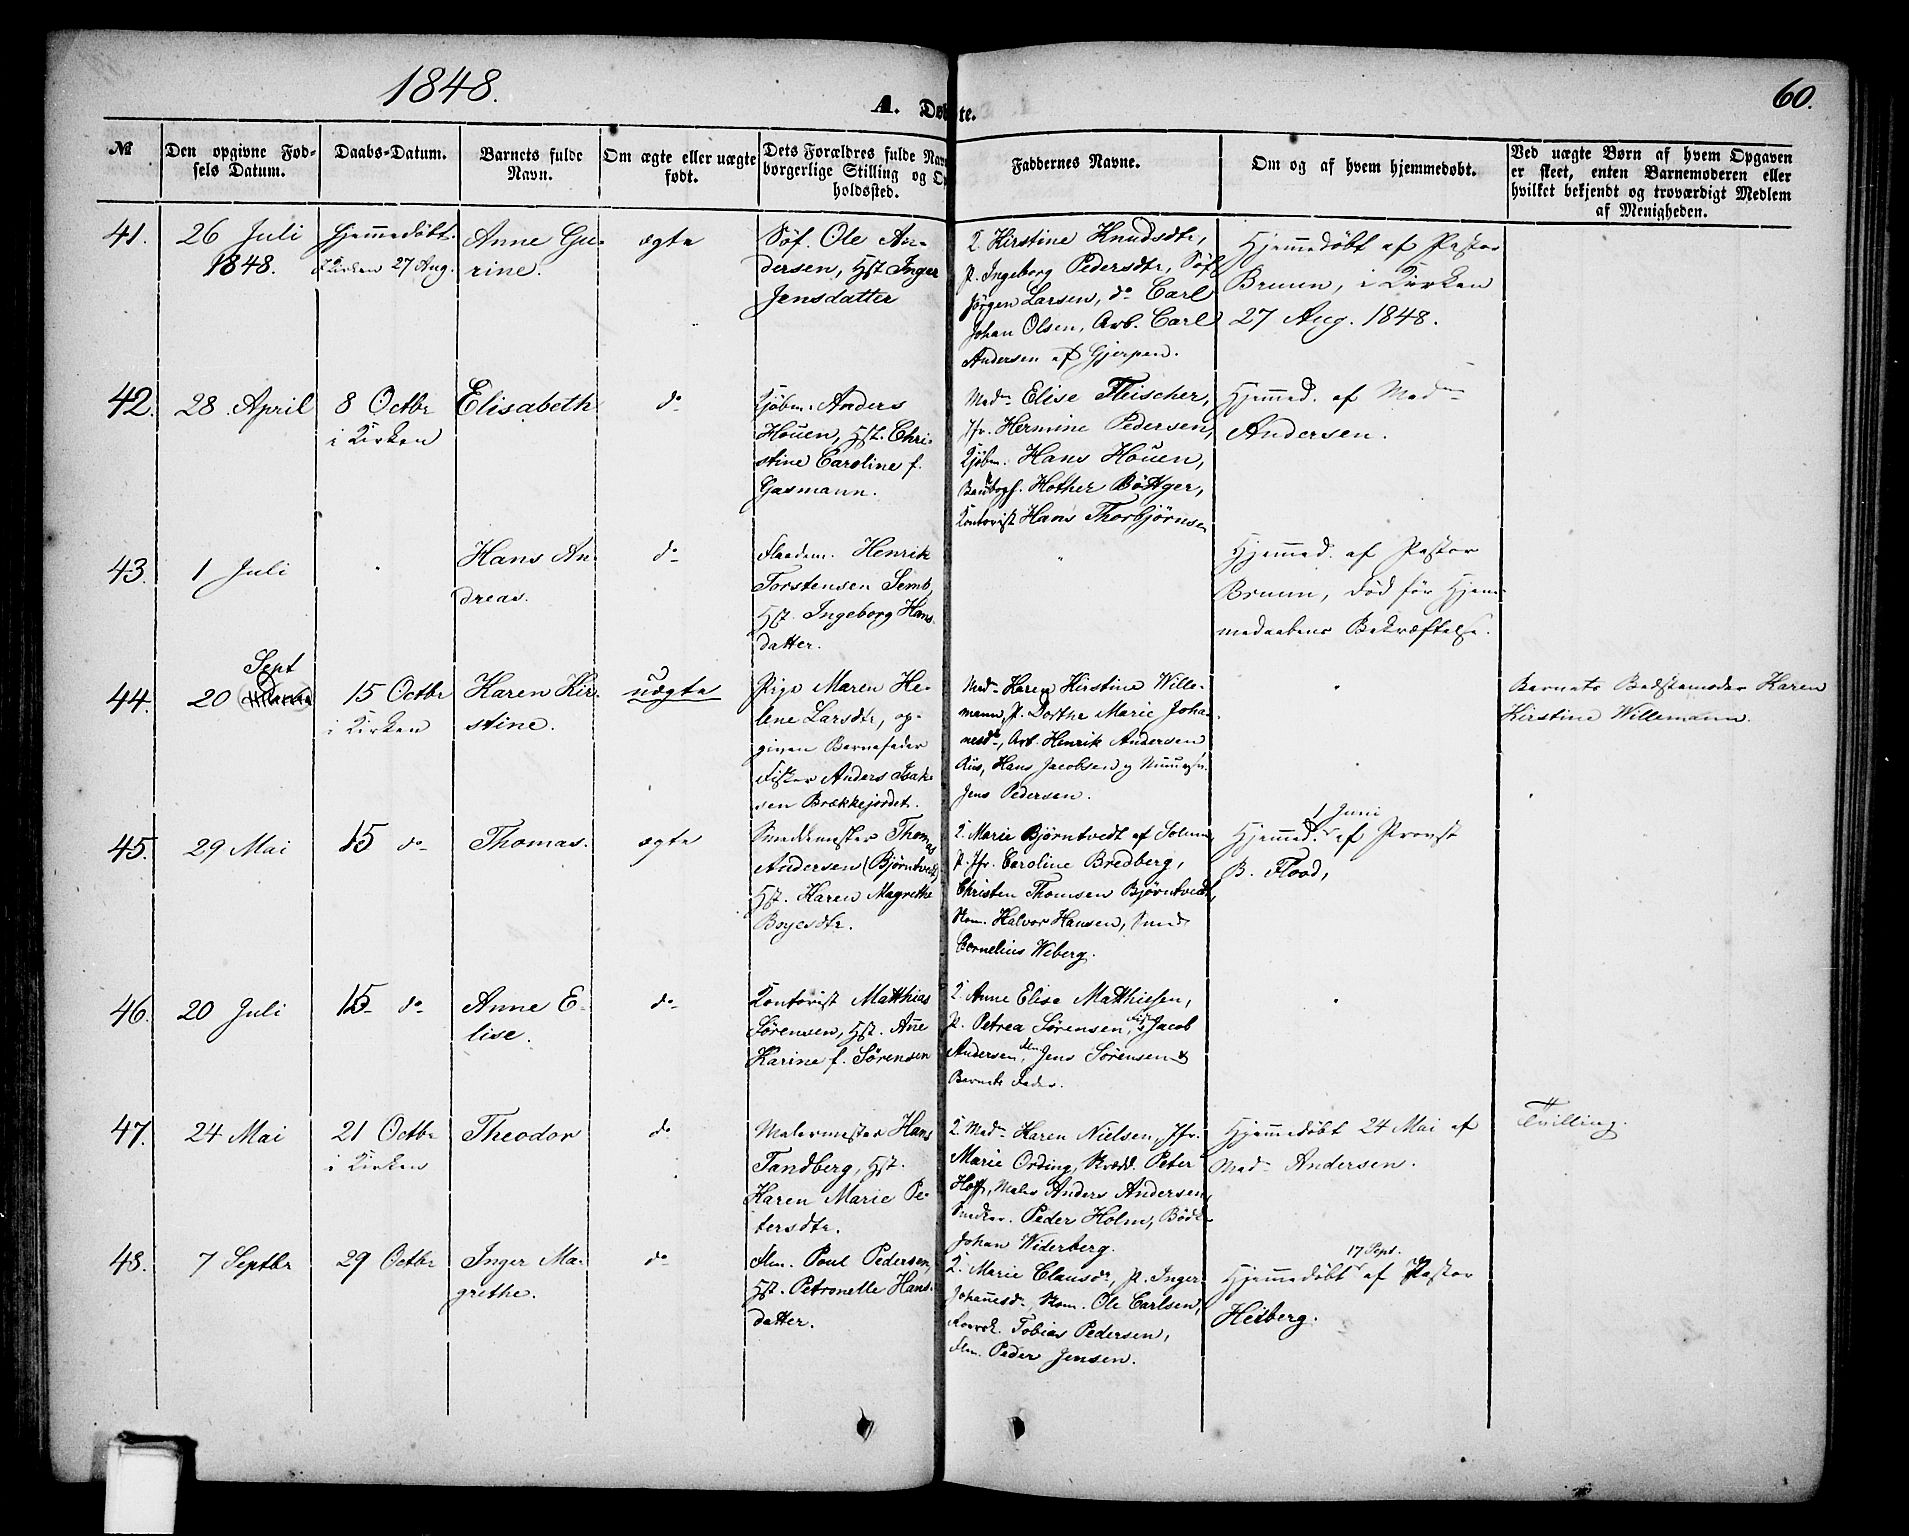 1848.
A. Døbte.
60.
№
Den opgivne Fød-
sels Datum.
Daabs-Datum.
Barnets fulde
Navn.
Om ægte eller uægte
født.
Dets Forældres fulde Nav
borgerlige Stilling og Op
holdssted.
Faddernes Navne.
Om og af hvem hjemmedøbt.
Ved uægte Børn af hvem Opgaven
er skeet, enten Barnemoderen eller
hvilket bekjendt og troværdigt Medlem
af Menigheden.
41.
26 Juli
1848.
Hjemmedøbt.
i Kirken 27 Aug.
Anne Gu-
rine.
ægte
Søf. Ole An-
dersen, Hst. Inger
Jensdatter
2. Kirstine Knudsdtr,
p. Ingeborg Pedersdtr, Søf.
Jørgen Larsen, do Carl
Johan Olsen, Arb. Carl
Andersen af Gjerpen.
Hjemmedøbt af Pastor
Bruun, i Kirken
27 Aug. 1848.
42.
28 April
8 Octbr
i Kirken
Elisabeth
do
Kjøbm. Anders
Houen, Hst. Chri-
stine Caroline f.
Gasmann.
Mad. Elise Fleischer,
Jfr. Hermine Pedersen,
Kjøbm. Hans Houen,
Hother Bøttger,
Kontorist Hans Thorbjørnsen
Hjemmed. af Mad
Andersen.
43.
1 Juli
"
Hans An-
dreas.
do
Flaadem. Henrik
Torstensen Semb,
Hst. Ingeborg Hans-
datter.
"
Hjemmed. af Pastor
Bruun, død før Hjem-
medaabens Bekræftelse.
44.
Sept
20
15 Octbr
i Kirken
Karen Kir-
stine.
uægte
Pige Maren He-
lene Larsdtr, op-
given Barnefader
Fisker Anders Isak-
sen Brækkejordet.
Mad. Karen Kirstine Wille-
mann, p. Dorthe Marie Joha-
nesdr, Arb. Henrik Andersen
Riis, Hans Jacobsen og Muursv.
Jens Pedersen.
"
Barnets Bedstemoder Karen
Kirstine Willemann.
45.
29 Mai
15 do
Thomas.
ægte
Smedemester Thomas
Andersen (Bjørntvedt)
Hst. Karen Magrethe
Boyesdtr.
2. Marie Bjørntvedt af Solum,
p. Jfr. Caroline Bredberg,
Christen Thomsen Bjørntvedt,
Skom. Halvor Hansen, Smed
Cornelius Weberg.
1 Juni
Hjemmed. af Provst
B. Flood,
46.
20 Juli
15 do
Anne E-
lise.
do
Kontorist Matthias
Sørensen, Hst. Anne
Karine f. Sørensen
2. Anne Elise Matthiesen,
p. Petrea Sørensen, Jacob
Andersen, Jens Sørensen &
Barnets Fader.
"
47.
24 Mai
21 Octbr
i Kirken
Theodor
do
Malermester Hans
Tandberg, Hst.
Karen Marie Pe-
tersdtr.
2. Mad. Karen Nielsen, Jfr.
Marie Ording, Skrædd. Peter
Hoff, Maler Anders Andersen,
Snedker. Peder Holm, Bødk.
Johan Widerberg.
Hjemmedøbt 24 Mai af
Mad. Andersen.
Tvilling.
48.
7 Septbr
29 Octbr
Inger Ma-
grethe.
do
Flm. Poul Pedersen,
Hst. Petronelle Hans-
datter.
2. Marie Clausdr, p. Inger
Johannesdr, Skom. Ole Carlsen,
Tobias Pedersen,
Flm. Peder Jensen.
17 Sept.
Hjemmedøbt af Pastor
Heiberg.